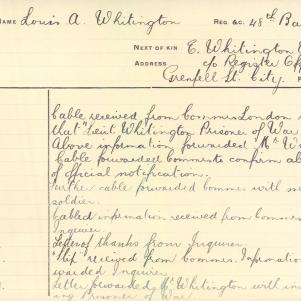 NAME Louis A. Whitington REG &C. 48th Ba
NEXT OF KIN E. Whitington E
ADDRESS c/o Register Off
Grenfell St. City.
Cable received from Comms London
that "Lieut Whitington Prisoner of War
Above information forwarded Mr W
Cable forwarded Comms to confirm ab
of official notification.
Further cable forwarded Comms. with
soldier.
Cabled information received from Comms
Inquirer
Letter of thanks from Inquirer.
"Slip" received from Comms. Information
warded Inquirer
Letter forwarded Mr Whitington with in
ing Prisoner of War